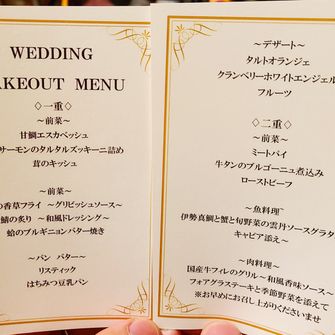 WEDDING
AKEOUT MENU
◇一重◇
～前菜～
甘鯛エスカベッシュ
サーモンのタルタルズッキーニ詰め
茸のキッシュ
～前菜～
の香草フライ ～グリビッシュソース～
鯖の炙り ～和風ドレッシング～
蛤のブルギニョンバター焼き
～パン バター～
リスティック
はちみつ豆乳パン
～デザート～
タルトオランジェ
クランベリーホワイトエンジェル
フルーツ
◇二重◇
～前菜～
ミートパイ
牛タンのブルゴーニュ煮込み
ローストビーフ
～魚料理～
伊勢真鯛と蟹と旬野菜の雲丹ソースグラタ
キャビア添え～
～肉料理～
国産牛フィレのグリル～和風香味ソース～
フォアグラステーキと季節野菜を添えて
※お早めにお召し上がりくださいませ